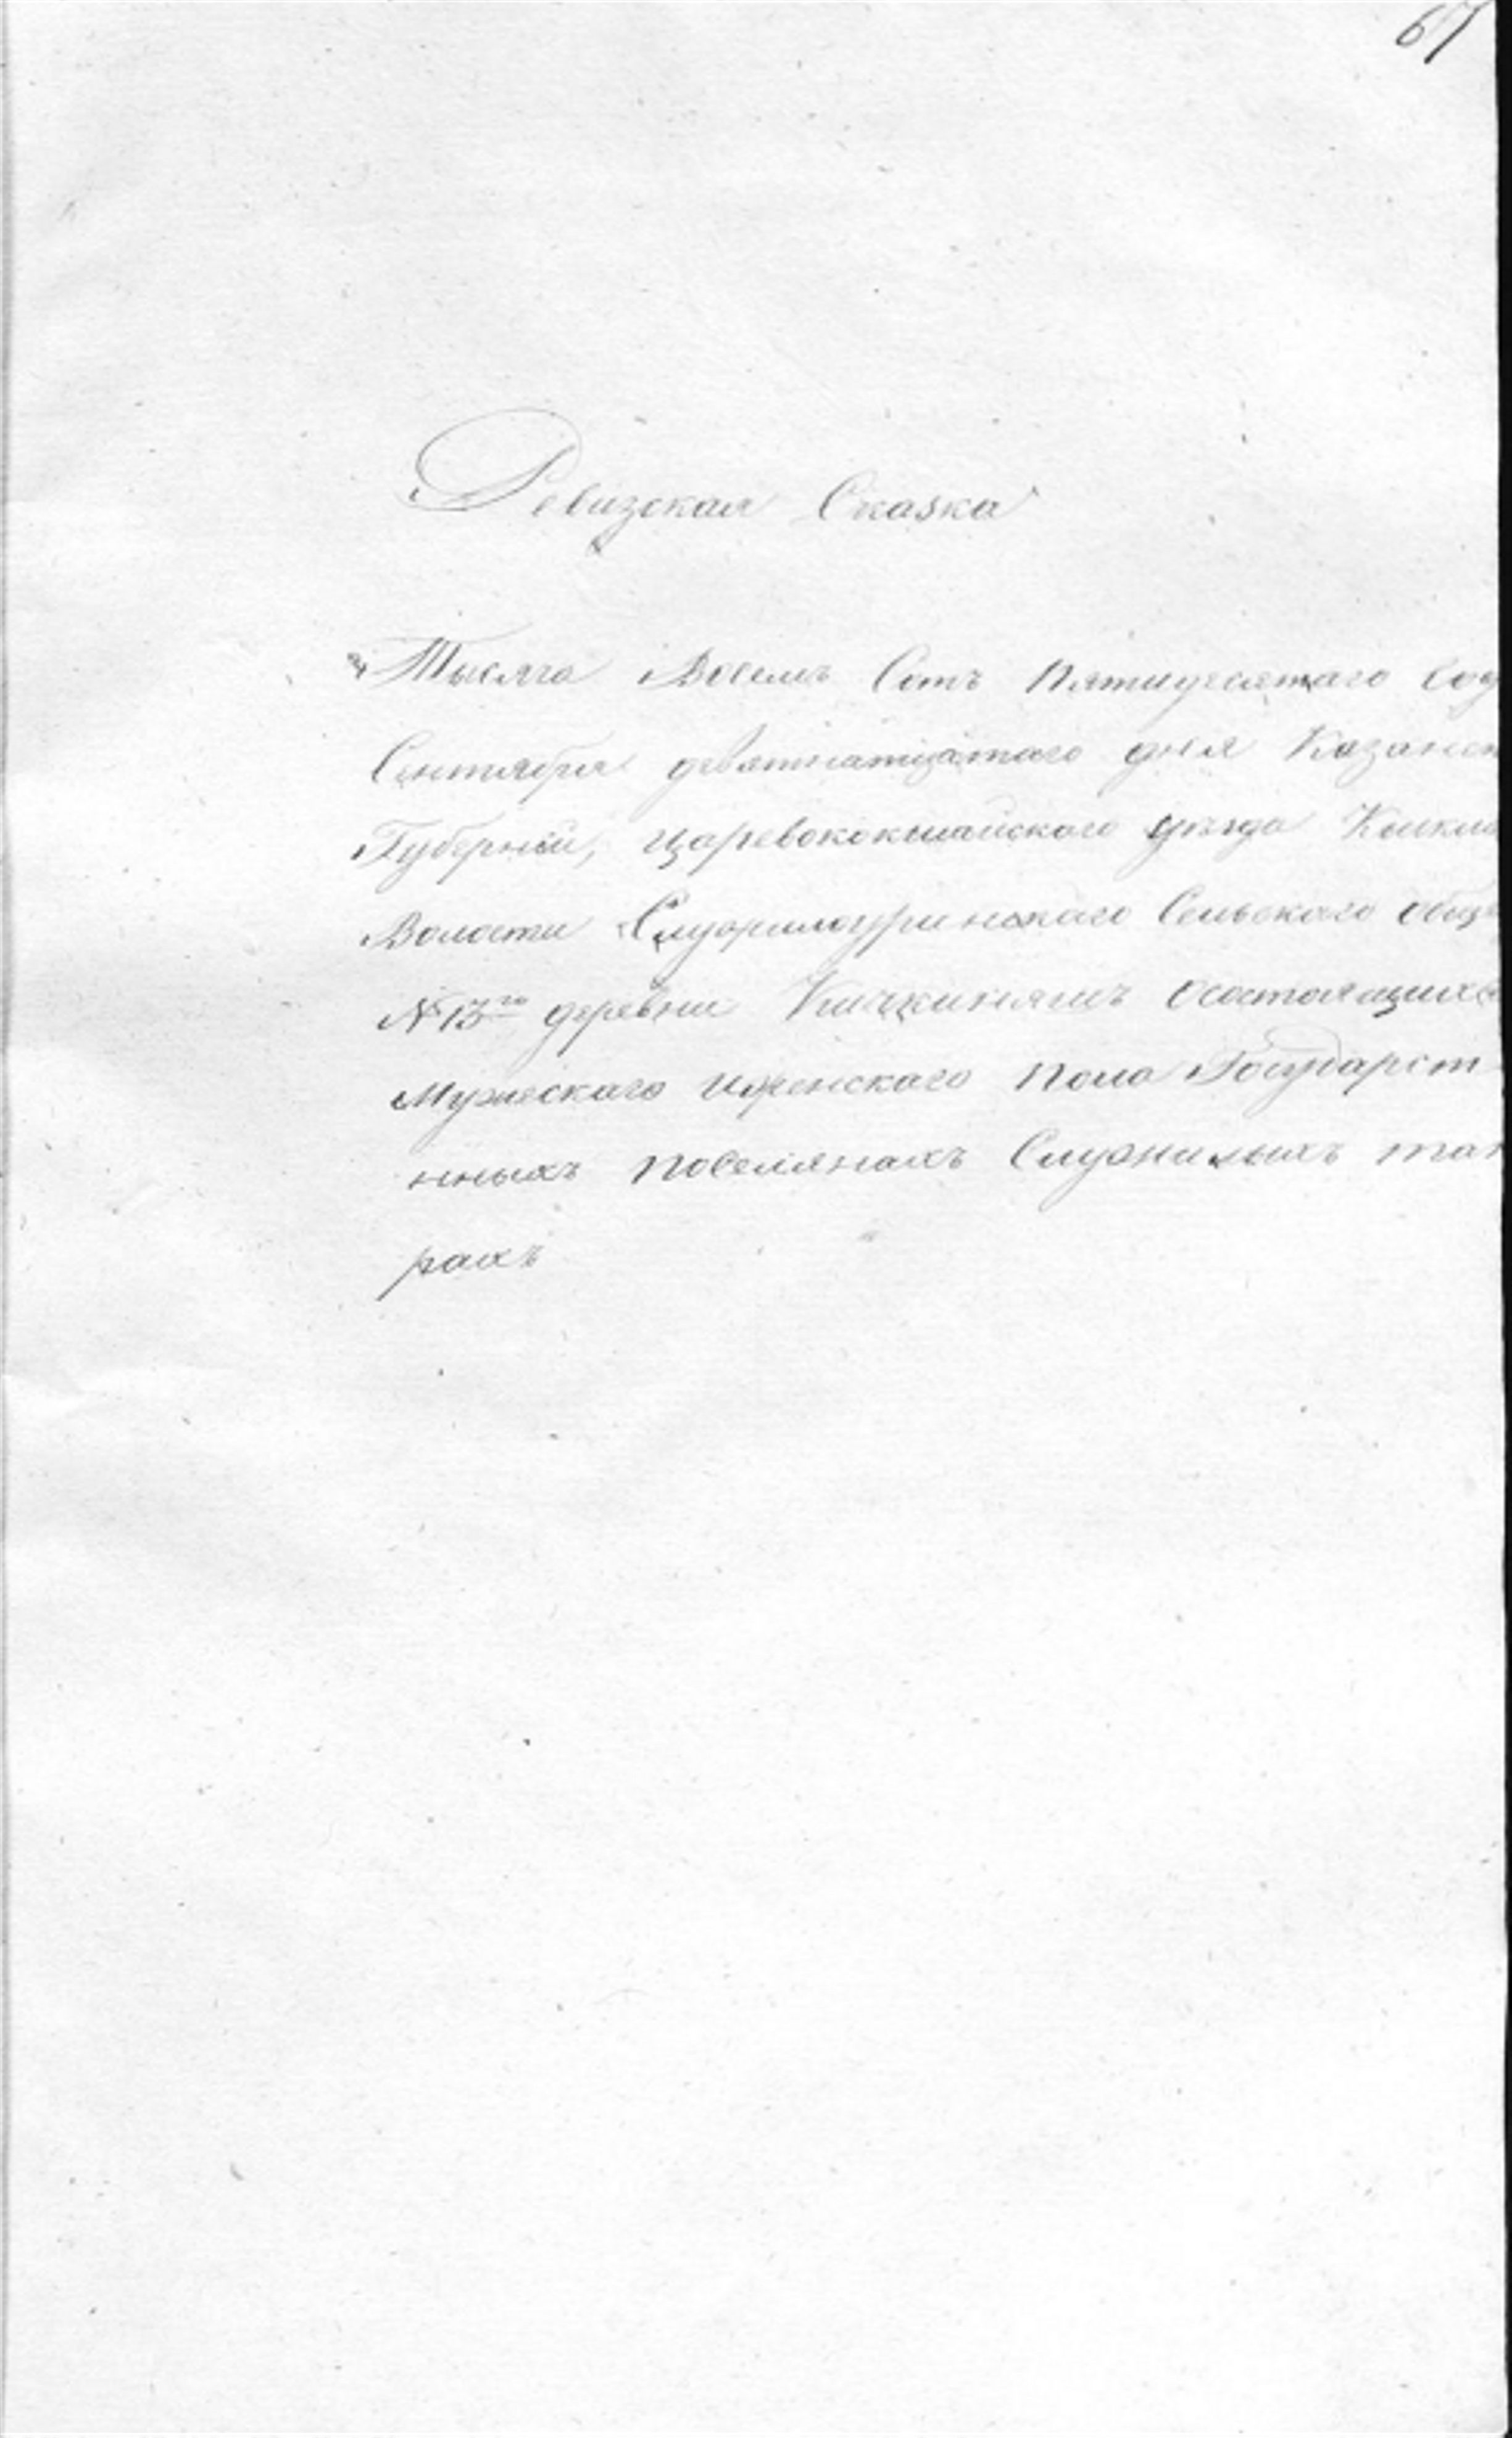 67
Ревизская Сказка
Тысяча Восемь Сотъ Пятидесятаго год
Сентября девятнатцатаго дня Казанск
Губерніи, Царевококшайского уѣзда
Волости Сельскаго общ
№ 13го деревни Кичкиняшъ Осостоящихъ
Мужескаго иженскаго пола Государст
нныхъ поселянахъ Служилыхъ тат
рахъ